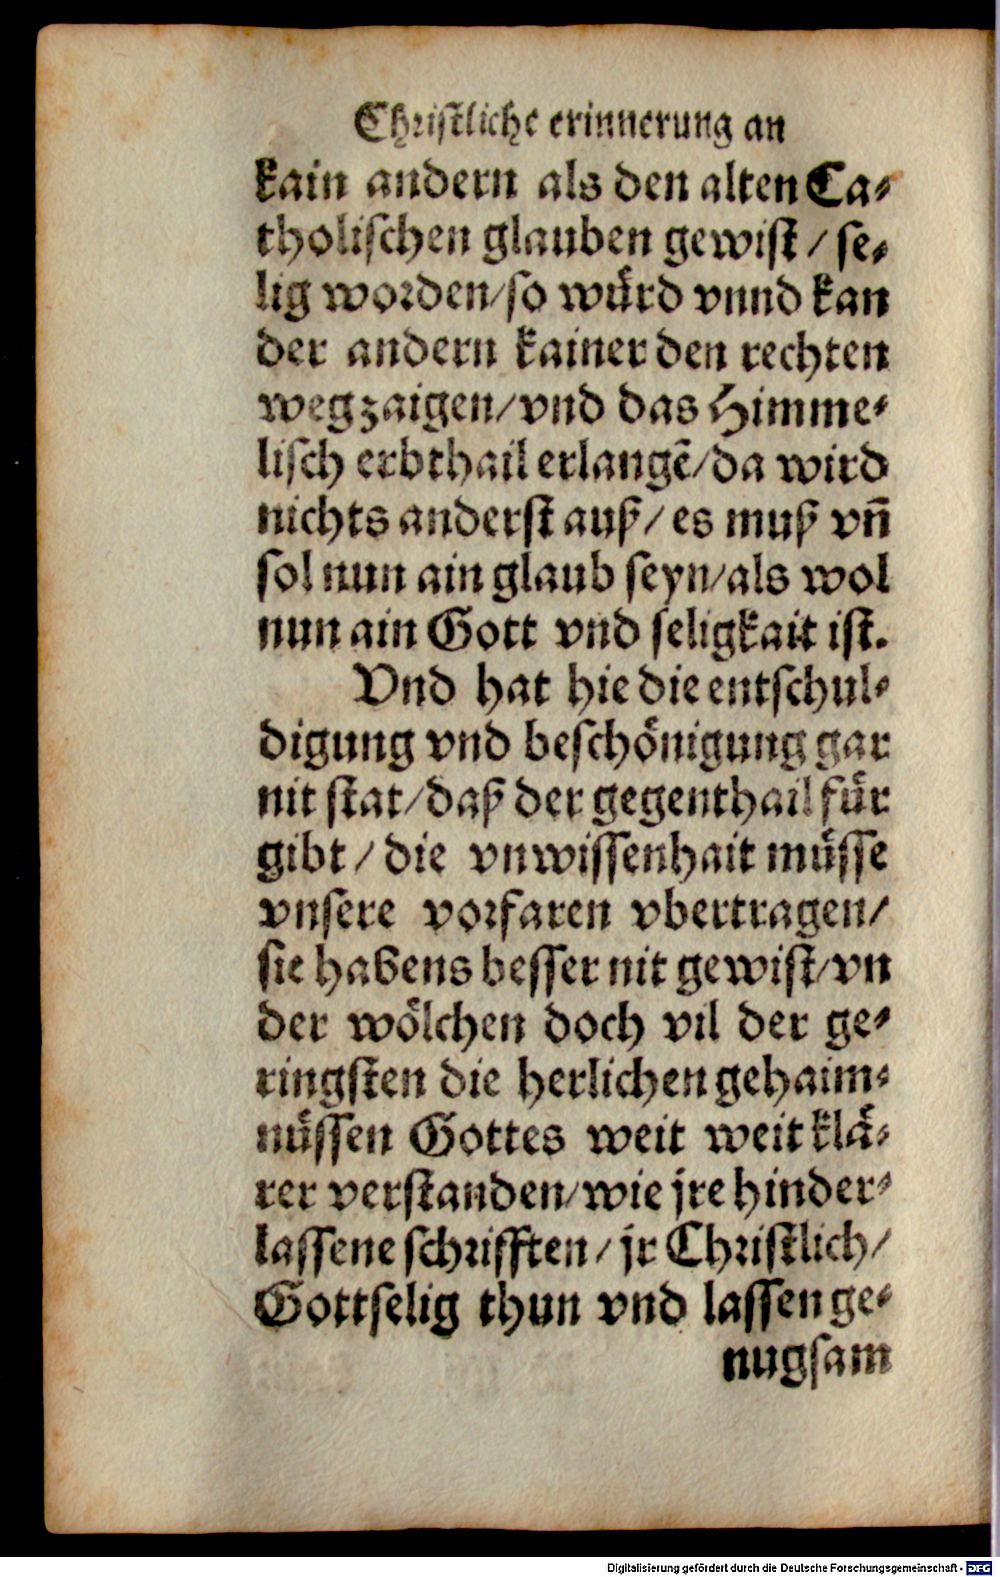 Christliche erinnerung an
kain andern als den alten Ca-
tholischen glauben gewist / se-
lig worden / so wuͤrd vnnd kan
der andern kainer den rechten
weg zaigen / vnd das Himme-
lisch erbthail erlangẽ / da wird
nichts anderst auß / es muß vñ
sol nun ain glaub seyn / als wol
nun ain Gott vnd seligkait ist.
Vnd hat hie die entschul-
digung vnd beschoͤnigung gar
nit stat / daß der gegenthail fuͤr
gibt / die vnwissenhait muͤsse
vnsere vorfaren vbertragen /
sie habens besser nit gewist / vn
der woͤlchen doch vil der ge-
ringsten die herlichen gehaim-
nuͤssen Gottes weit weit klaͤ-
rer verstanden / wie jre hinder-
lassene schrifften / jr Christlich /
Gottselig thun vnd lassen ge-
nugsam
Digitalisierung gefördert durch die Deutsche Forschungsgemeinschaft - DFG